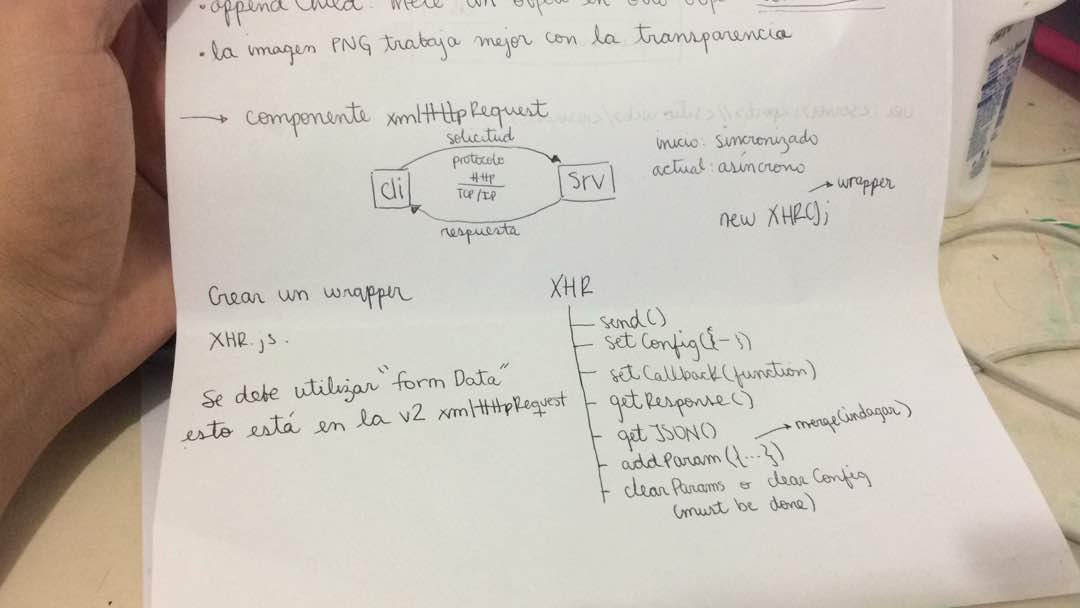 • append Child: Mete un
• la imagen PNG trabaja mejor con la transparencia
→ componente xmlHttpRequest
solicitud
protocolo
HTTP
TCP/IP
cli
Srv
respuesta
inicio: sincronizado
actual: asíncrono
→ wrapper
new XHR();
Crear un wrapper
XHR.js.
Se debe utilizar "form Data"
esto está en la v2 xmlHttpRequest
XHR
send()
set Config({-})
set Callback(function)
getResponse()
get JSON()
→ merge(indagar)
addParam({...})
clearParams o clear Config
(must be done)